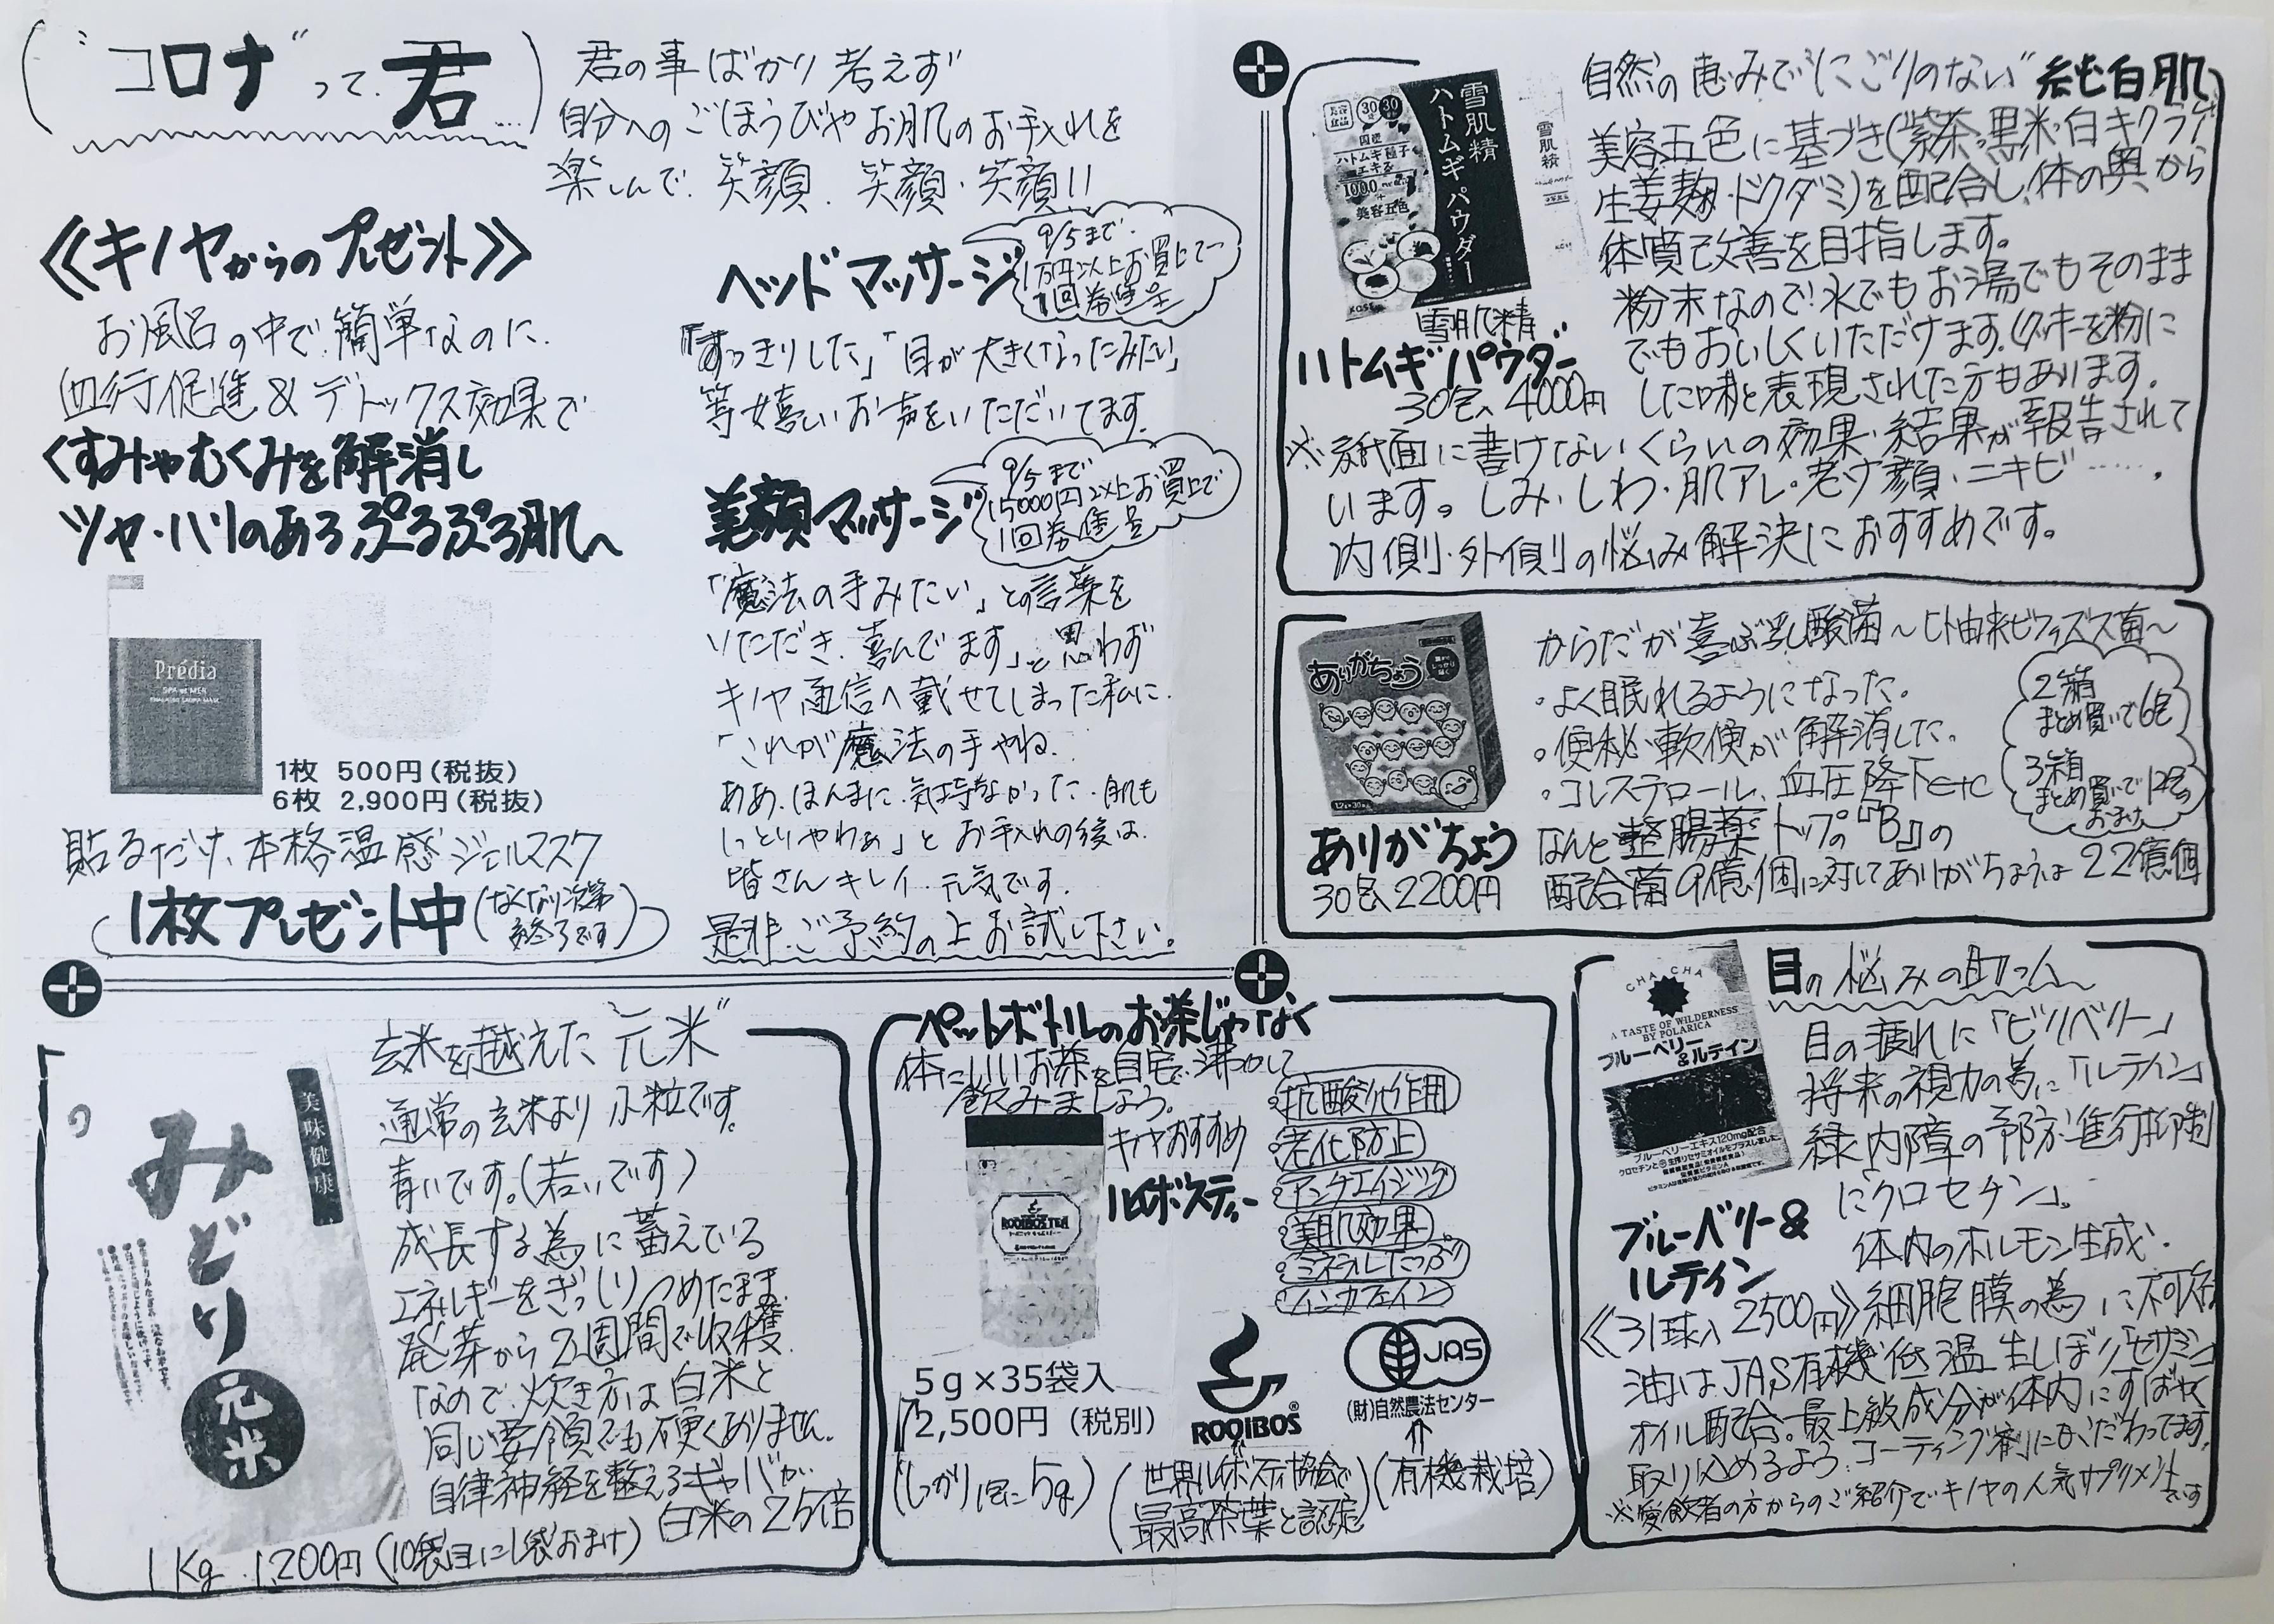 ("コロナ"って君…)
君の事ばかり考えず
自分へのごほうびやお肌のお手入れを
楽しんで、笑顔、笑顔・笑顔!!
《キノヤからのプレゼント》
お風呂の中で簡単なのに、
血行促進&デトックス効果で
くすみやむくみを解消し
ツヤ・ハリのあるぷるぷる肌へ
Prédia
SPA et MER
1枚 500円(税抜)
6枚 2,900円(税抜)
貼るだけ、本格温感ジェルマスク
1枚プレゼント中(なくなり次第
終了です)
ヘッドマッサージ
9/5まで.
1万円以上お買上で
1回券進呈
「すっきりした」「目が大きくなったみたい」
等嬉しいお声をいただいてます.
美顔マッサージ
9/5まで
15000円以上お買上で
1回券進呈
「魔法の手みたい」との言葉を
いただき、喜んでます」と思わず
キノヤ通信へ載せてしまった私に、
「これが魔法の手やね、
ああ、ほんまに、気持ちよかった、肌も
しっとりやわぁ」とお手入れの後は、
皆さんキレイ、元気です。
是非、ご予約の上お試し下さい。
自然の恵みで"にごりのない"純白肌
美容五色に基づき(紫茶・黒米・白キクラゲ
生姜麹・ドクダミ)を配合し、体の奥から
体質改善を目指します。
粉末なので、水でもお湯でもそのまま
でもおいしくいただけます。(クッキーを粉に
した味と表現された方もあります。
雪肌精
ハトムギパウダー
国産
ハトムギ種子
エキス
1000
美容五色
雪肌精
KOSE
雪肌精
ハトムギパウダー
30包入 4000円
※紙面に書けないくらいの効果・結果が報告されて
います。しみ・しわ・肌アレ・老け顔・ニキビ……。
内側・外側の悩み解決におすすめです。
からだが喜ぶ乳酸菌~ヒト由来ビフィズス菌~
・よく眠れるようになった。
・便秘、軟便が解消した。
・コレステロール、血圧降下etc
なんと整腸薬トップの『B』の
配合菌9億個に対してありがちょうは22億個
2箱
まとめ買いで6包
3箱
まとめ買いで12包の
おまけ
ありがちょう
ありがちょう
30包 2200円
玄米を越えた"元米"
通常の玄米より小粒です。
青いです。(若いです)
成長する為に蓄えている
エネルギーをぎっしりつめたまま
発芽から2週間で収穫.
なので、炊き方は白米と
同じ要領でも硬くありません.
自律神経を整えるギャバが、
白米の25倍
美味健康
みどり
元米
1Kg 1,200円(10袋目に1袋おまけ)
ペットボトルのお茶じゃなく
体にいいお茶を自宅で沸かして
飲みましょう。
キノヤおすすめ
ルイボスティー
・抗酸化作用
・老化防止
・アンチエイジング
・美肌効果
・ミネラルたっぷり
・ノンカフェイン
ROOIBOS TEA
5g×35袋入
2,500円(税別)
(しっかり1包に5g)
ROOIBOS®
(世界ルイボスティ協会で
最高茶葉と認定)
JAS
(財)自然農法センター
(有機栽培)
目の悩みの助っ人
目の疲れに「ビルベリー」
将来の視力の為に「ルテイン」
緑内障の予防・進行抑制
に「クロセチン」。
体内のホルモン生成・
細胞膜の為に不可欠
CHA CHA
A TASTE OF WILDERNESS
BY POLARICA
ブルーベリー
&ルテイン
ブルーベリーエキス120mg配合
ブルーベリー&
ルテイン
《31球入 2500円》
油はJAS有機低温生しぼり「セサミン」
オイル配合。最上級成分が体内にすばやく
取り込めるよう、コーティング剤にもこだわってます。
※愛飲者の方からのご紹介でキノヤの人気サプリメントです